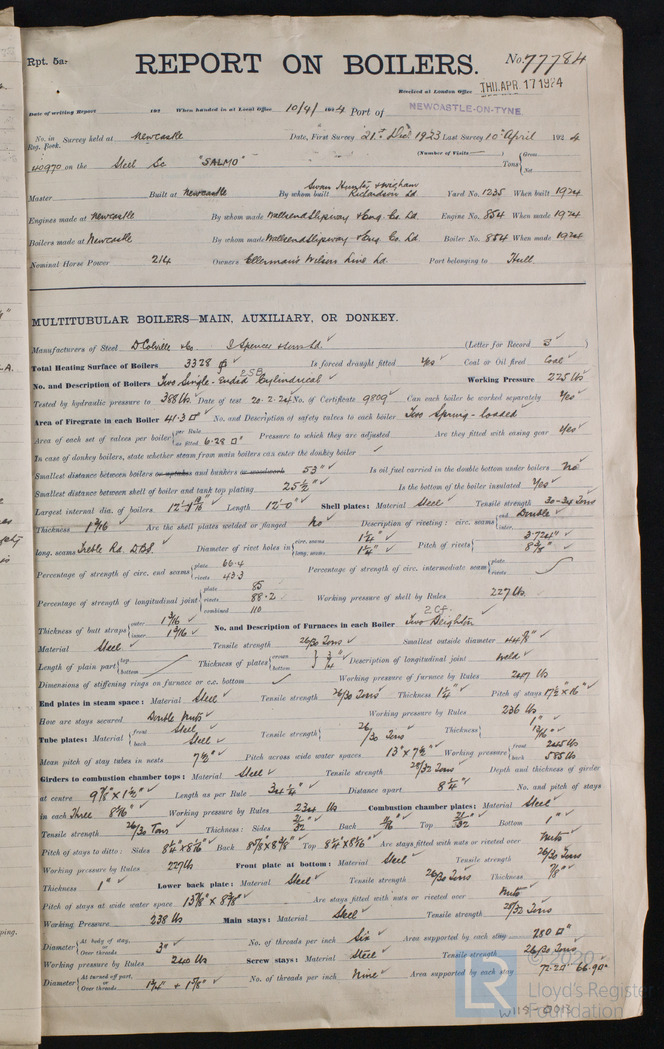 Rpt. 5a.
REPORT ON BOILERS.
No. 77784
Received at London Office THU. APR. 17 1924
Date of writing Report 192 When handed in at Local Office 10/4/ 1924 Port of NEWCASTLE-ON-TYNE
No. in Reg. Book. Survey held at Newcastle Date, First Survey 21st Dec. 1923 Last Survey 10th April 1924
(Number of Visits )
40970 on the Steel Sc "SALMO" Tons { Gross Net
Master Built at Newcastle By whom built Swan Hunter & Wigham Richardson Ld Yard No. 1235 When built 1924
Engines made at Newcastle By whom made Wallsend Slipway & Eng. Co. Ld. Engine No. 854 When made 1924
Boilers made at Newcastle By whom made Wallsend Slipway & Eng. Co. Ld. Boiler No. 854 When made 1924
Nominal Horse Power 214 Owners Ellerman's Wilson Line Ld. Port belonging to Hull
MULTITUBULAR BOILERS—MAIN, AUXILIARY, OR DONKEY.
Manufacturers of Steel D. Colville & Co J. Spencer & Sons Ld. (Letter for Record S )
Total Heating Surface of Boilers 3328 Is forced draught fitted Yes Coal or Oil fired Coal
No. and Description of Boilers Two Single-Ended Cylindrical 2SB Working Pressure 225 lbs
Tested by hydraulic pressure to 388 lbs Date of test 20.2.24 No. of Certificate 9809 Can each boiler be worked separately Yes
Area of Firegrate in each Boiler 41.3 □' No. and Description of safety valves to each boiler Two Spring-loaded
Area of each set of valves per boiler { per Rule as fitted 6.28 □" Pressure to which they are adjusted Are they fitted with easing gear Yes
In case of donkey boilers, state whether steam from main boilers can enter the donkey boiler
Smallest distance between boilers or uptakes and bunkers or woodwork 53" Is oil fuel carried in the double bottom under boilers No
Smallest distance between shell of boiler and tank top plating 25½" Is the bottom of the boiler insulated Yes
Largest internal dia. of boilers Length 12'-0" Shell plates: Material Steel Tensile strength 30-34 Tons
Thickness 1 3/16 Are the shell plates welded or flanged No Description of riveting: circ. seams { end Double inter.
long. seams Treble Rd. D.B.S. Diameter of rivet holes in { circ. seams 1¼" long. seams 1¼" Pitch of rivets { 3.724" 8⅜"
Percentage of strength of circ. end seams { plate 66.4 rivets 43.3 Percentage of strength of circ. intermediate seam { plate rivets
Percentage of strength of longitudinal joint { plate 85 rivets 88.2 combined 110 Working pressure of shell by Rules 227 lbs
Thickness of butt straps { outer 1 3/16 inner 1 3/16 No. and Description of Furnaces in each Boiler Two Deighton 2 Cf.
Material Steel Tensile strength 26/30 Tons Smallest outside diameter
Length of plain part { top bottom Thickness of plates { crown bottom } Description of longitudinal joint Weld
Dimensions of stiffening rings on furnace or c.c. bottom Working pressure of furnace by Rules 247 lbs
End plates in steam space: Material Steel Tensile strength 26/30 Tons Thickness 1¼" Pitch of stays 17½" x 16"
How are stays secured Double Nuts Working pressure by Rules 236 lbs
Tube plates: Material { front Steel back Steel Tensile strength { 26/30 Tons Thickness { 1" 13/16"
Mean pitch of stay tubes in nests 7½" Pitch across wide water spaces 13" x 7½" Working pressure { front 245 lbs back 585 lbs
Girders to combustion chamber tops: Material Steel Tensile strength 28/32 Tons Depth and thickness of girder
at centre 9⅞" x 1½" Length as per Rule Distance apart 8¼" No. and pitch of stays
in each Three 8 1/16" Working pressure by Rules 234 lbs Combustion chamber plates: Material Steel
Tensile strength 26/30 Tons Thickness: Sides 21/32" Back Top 21/32" Bottom 1"
Pitch of stays to ditto: Sides Back Top Are stays fitted with nuts or riveted over Nuts
Working pressure by Rules 227 lbs Front plate at bottom: Material Steel Tensile strength 26/30 Tons
Thickness 1" Lower back plate: Material Steel Tensile strength 26/30 Tons Thickness 7/8"
Pitch of stays at wide water space 13⅞" x 8⅜" Are stays fitted with nuts or riveted over Nuts
Working Pressure 238 lbs Main stays: Material Steel Tensile strength 28/32 Tons
Diameter { At body of stay, or Over threads 3" No. of threads per inch Six Area supported by each stay 280 □"
Working pressure by Rules 240 lbs Screw stays: Material Steel Tensile strength 26/30 Tons
Diameter { At turned off part, or Over threads No. of threads per inch Nine Area supported by each stay
© 2020
LR
Lloyd's Register
Foundation
W115-0013